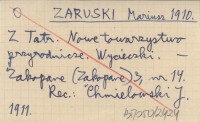 ZARUSKI Mariusz 1910.
Z Tatr. Nowe towarzystwo
przyrodnicze. Wycieczki. -
Zakopane (Zakopane) 3, nr 14.
Rec.: Chmielowski J.
1911.